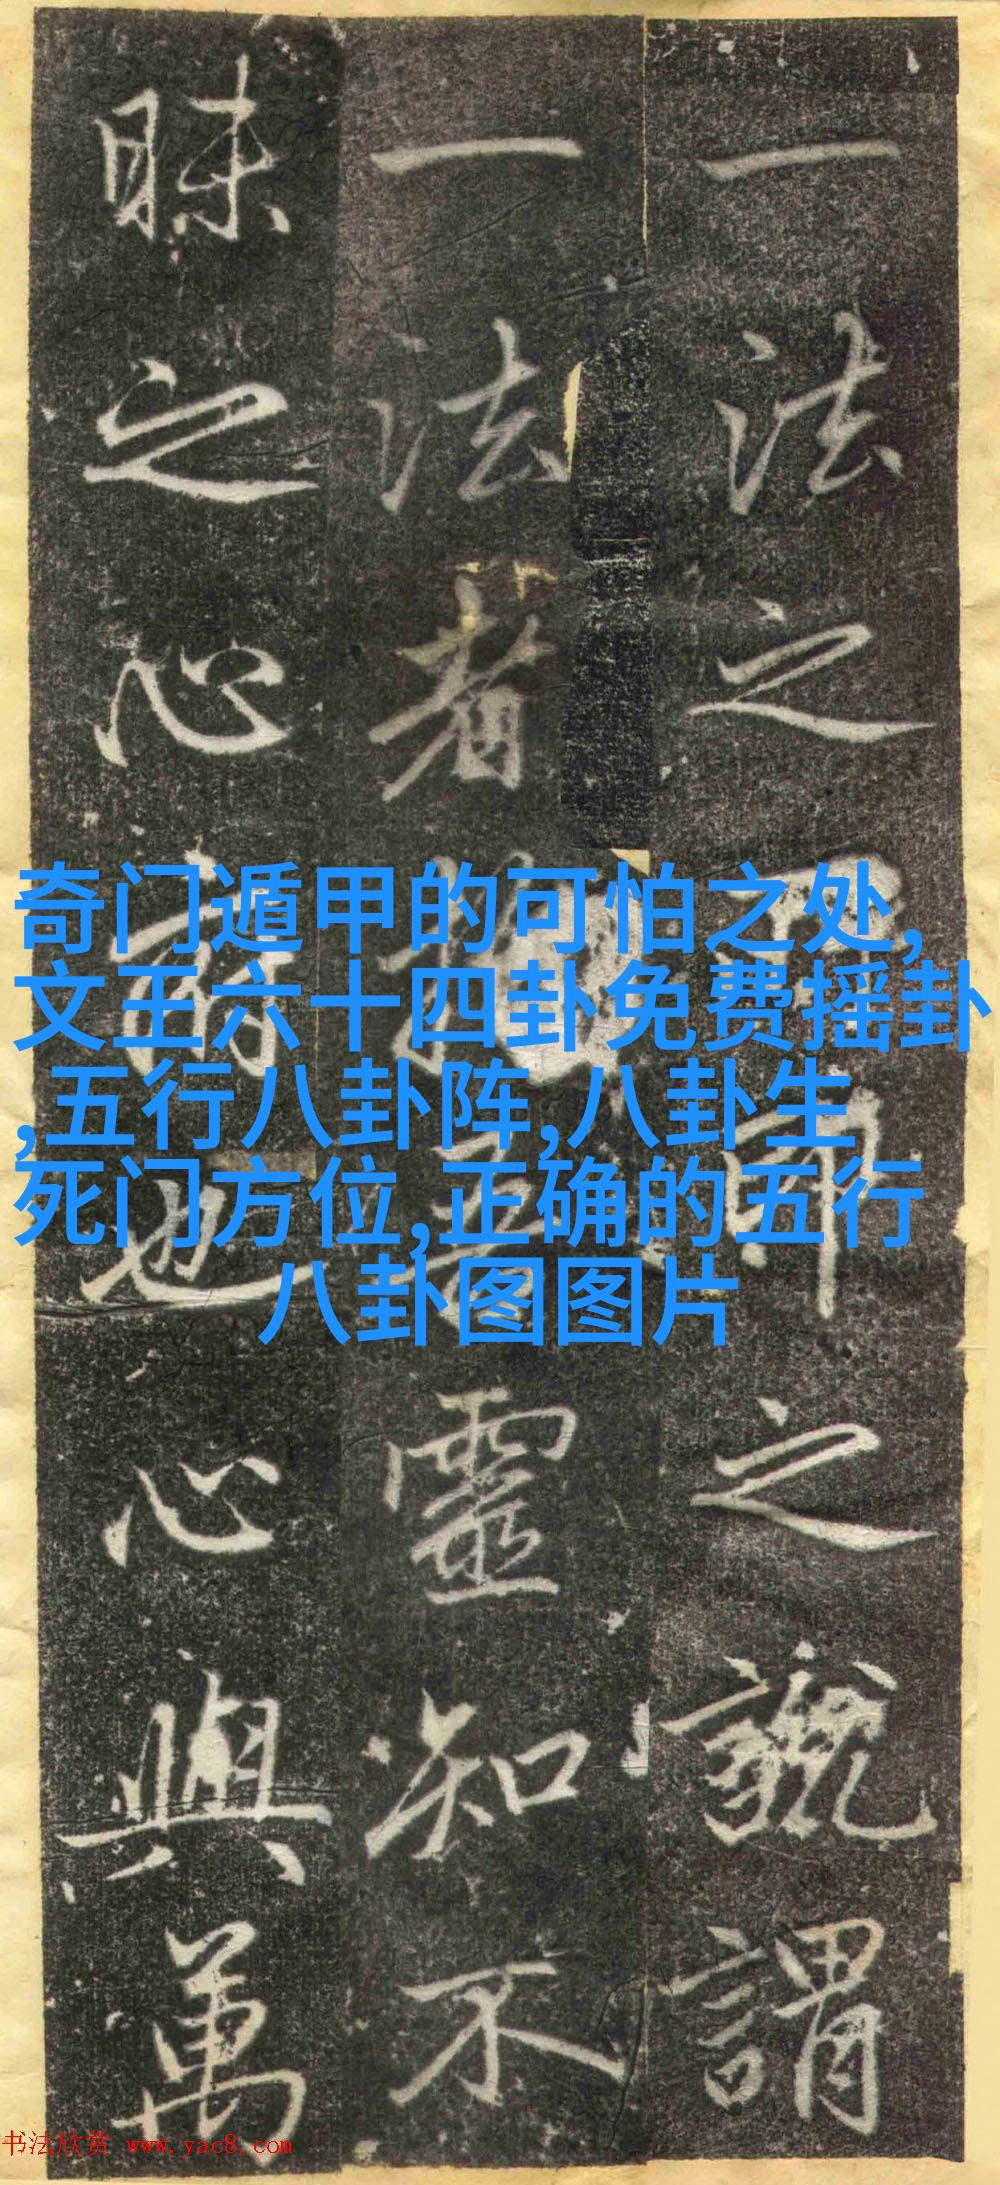 奇门遁甲的可怕之处,
文王六十四卦免费摇卦
,五行八卦阵,八卦生
死门方位,正确的五行
八卦图图片
一法之印之謂
一法者靈知不
昧之心也心與萬
书法欣赏 www.yac8.com